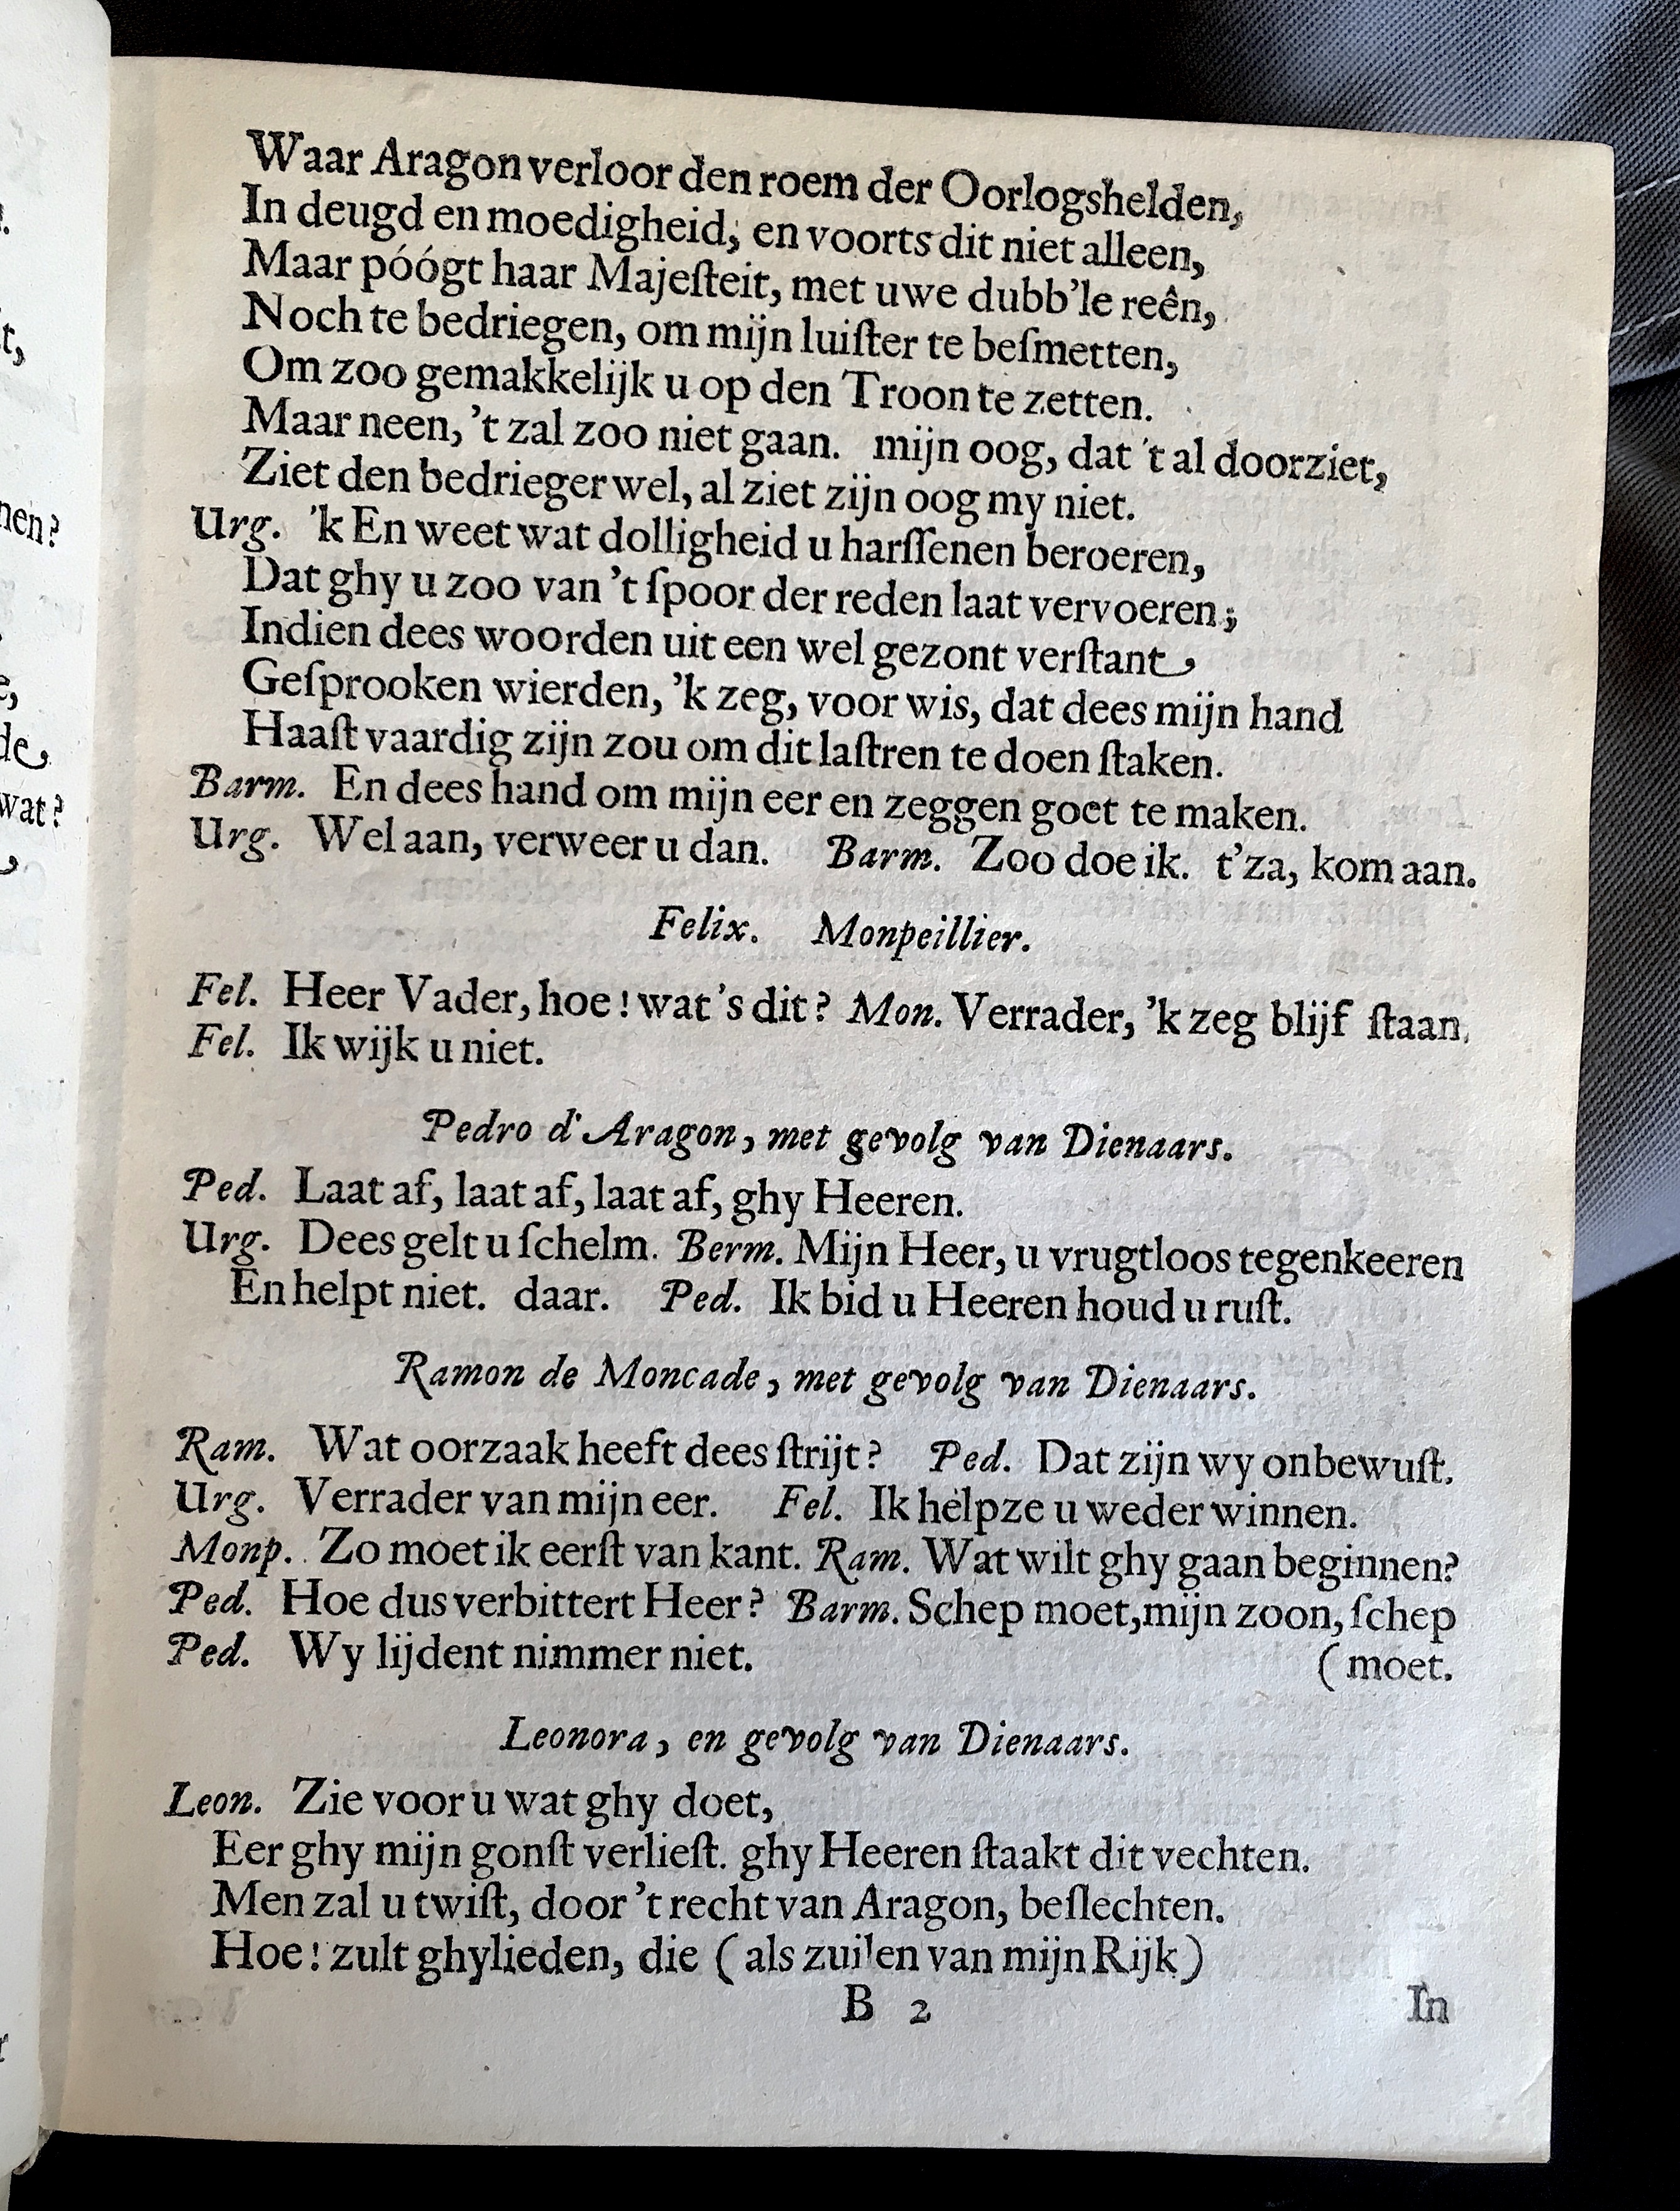 Waar Aragon verloor den roem der Oorlogshelden,
In deugd en moedigheid; en voorts dit niet alleen,
Maar póógt haar Majeſteit, met uwe dubb'le reên,
Noch te bedriegen, om mijn luiſter te beſmetten,
Om zoo gemakkelijk u op den Troon te zetten.
Maar neen, 't zal zoo niet gaan. mijn oog, dat 't al doorziet,
Ziet den bedrieger wel, al ziet zijn oog my niet.
Urg. 'k En weet wat dolligheid u harſſenen beroeren,
Dat ghy u zoo van 't ſpoor der reden laat vervoeren;
Indien dees woorden uit een wel gezont verſtant,
Geſprooken wierden, 'k zeg, voor wis, dat dees mijn hand
Haaſt vaardig zijn zou om dit laſtren te doen ſtaken.
Barm. En dees hand om mijn eer en zeggen goet te maken.
Urg. Wel aan, verweer u dan. Barm. Zoo doe ik. t'za, kom aan.
Felix. Monpeillier.
Fel. Heer Vader, hoe! wat 's dit? Mon. Verrader, 'k zeg blijf ſtaan.
Fel. Ik wijk u niet.
Pedro d'Aragon, met gevolg van Dienaars.
Ped. Laat af, laat af, laat af, ghy Heeren.
Urg. Dees gelt u ſchelm. Berm. Mijn Heer, u vrugtloos tegenkeeren
En helpt niet. daar. Ped. Ik bid u Heeren houd u ruſt.
Ramon de Moncade, met gevolg van Dienaars.
Ram. Wat oorzaak heeft dees ſtrijt? Ped. Dat zijn wy onbewuſt.
Urg. Verrader van mijn eer. Fel. Ik help ze u weder winnen.
Monp. Zo moet ik eerſt van kant. Ram. Wat wilt ghy gaan beginnen?
Ped. Hoe dus verbittert Heer? Barm. Schep moet, mijn zoon, ſchep
Ped. Wy lijdent nimmer niet. (moet.
Leonora, en gevolg van Dienaars.
Leon. Zie voor u wat ghy doet,
Eer ghy mijn gonſt verlieſt. ghy Heeren ſtaakt dit vechten.
Men zal u twiſt, door 't recht van Aragon, beſlechten.
Hoe! zult ghylieden, die (als zuilen van mijn Rijk)
B 2 In